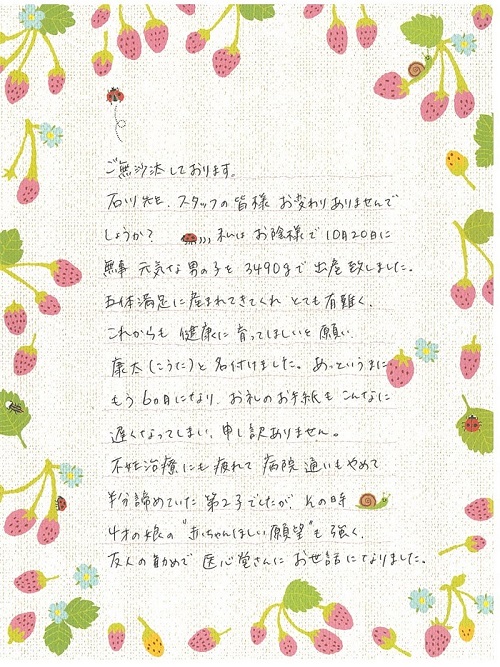 ご無沙汰しております。
石川先生、スタッフの皆様 お変わりありませんで
しょうか? 私は お陰様で 10月20日に
無事 元気な男の子を 3490gで 出産致しました。
五体満足に産まれてきてくれ とても有難く、
これからも 健康に 育ってほしいと 願い
康太(こうた)と 名付けました。あっというまに
もう 6ヶ月になり、お礼のお手紙も こんなに
遅くなってしまい、申し訳ありません。
不妊治療にも 疲れて 病院 通いもやめて
半分諦めていた 第2子でしたが、その時
4才の娘の "赤ちゃんほしい願望" も 強く、
友人の勧めで 医心堂さんに お世話になりました。